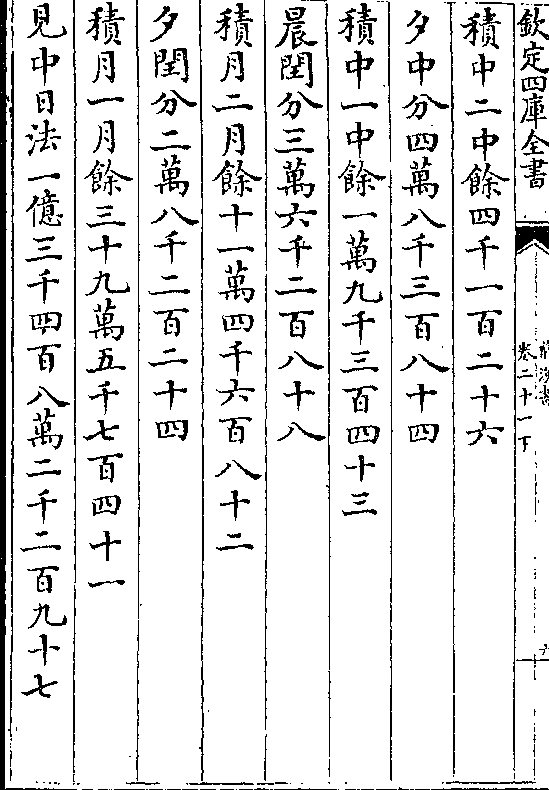 欽定四庫全書
卷二十一下
積中二中餘四千一百二十六
夕中分四萬八千三百八十四
積中一中餘一萬九千三百四十三
晨閏分三萬六千二百八十八
積月二月餘十一萬四千六百八十二
夕閏分二萬八千二百二十四
積月一月餘三十九萬五千七百四十一
見中日法一億三千四百八萬二千二百九十七